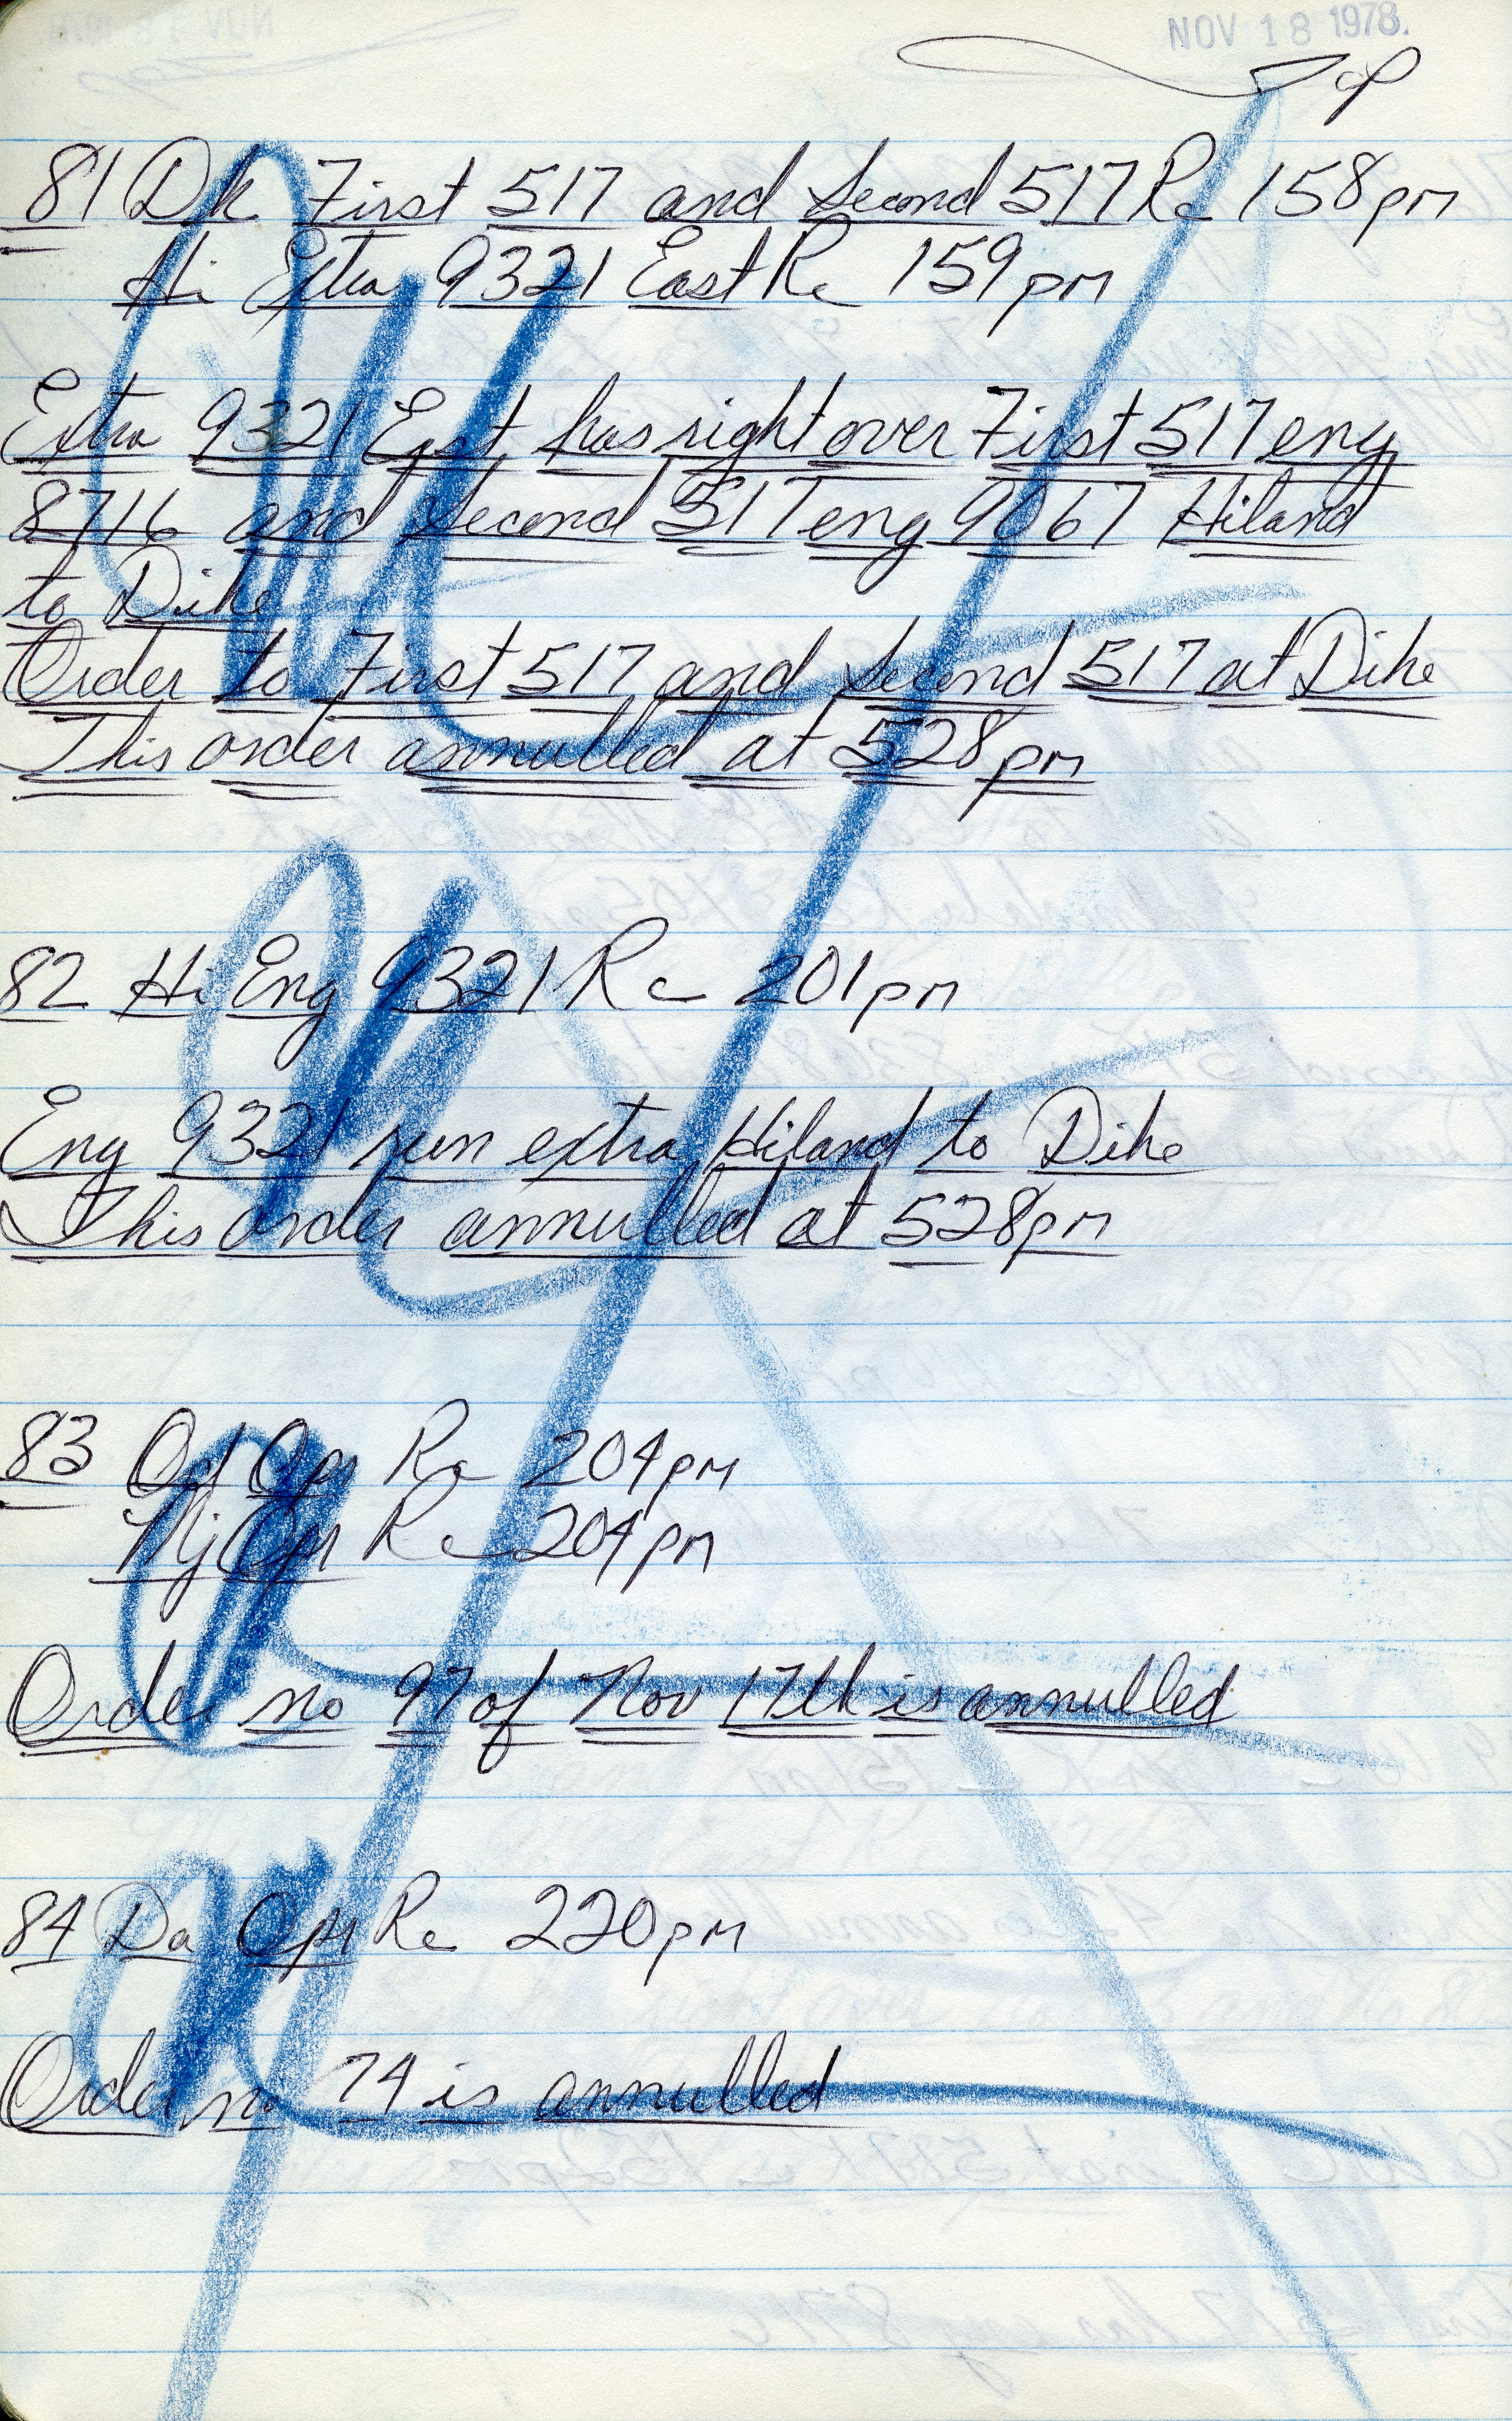 NOV 18 1978.
81 Dk First 517 and Second 517 Rc 158pm
Hi Extra 9321 East Rc 159pm
Extra 9321 East has right over First 517 eng
8716 and Second 517 eng 9067 Hiland
to Dike
Order to First 517 and Second 517 at Dike
This order annulled at 528pm
82 Hi Eng 9321 Rc 201pm
Eng 9321 run extra Hiland to Dike
This order annulled at 528pm
83 Od Opr Rc 204pm
Nj Opr Rc 204pm
Order no 97 of Nov 17th is annulled
84 Da Opr Rc 220pm
Order no 74 is annulled